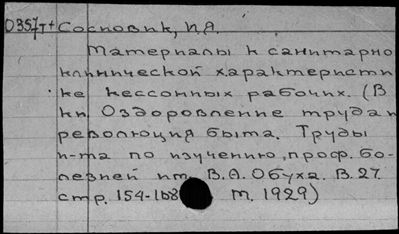 0357т+ Сосновик, И.Я.
Материалы к санитарно
клинической характеристи
ке кессонных рабочих. (В
кн. Оздоровление труда и
революция быта. Труды
и-та по изучению проф. бо-
лезней им. В.А. Обуха. В. 27.
стр. 154-168 М. 1929)